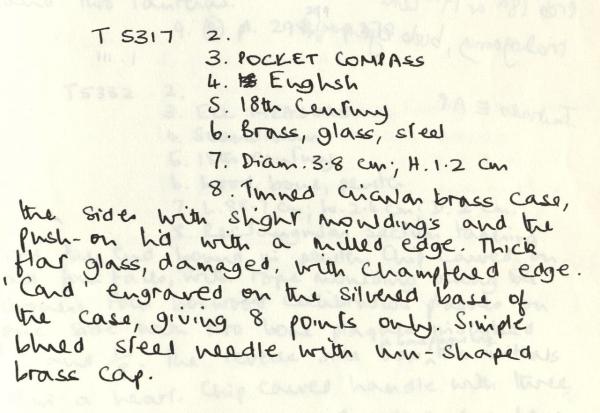 T 5317 2.
3. POCKET COMPASS
4. English
5. 18th Century
6. Brass, glass, steel
7. Diam. 3.8 cm; H. 1.2 cm
8. Turned circular brass case,
the sides with slight mouldings and the
push-on lid with a milled edge. Thick
flat glass, damaged, with champfered edge.
'Card' engraved on the silvered base of
the case, giving 8 points only. Simple
blued steel needle with urn-shaped
brass cap.